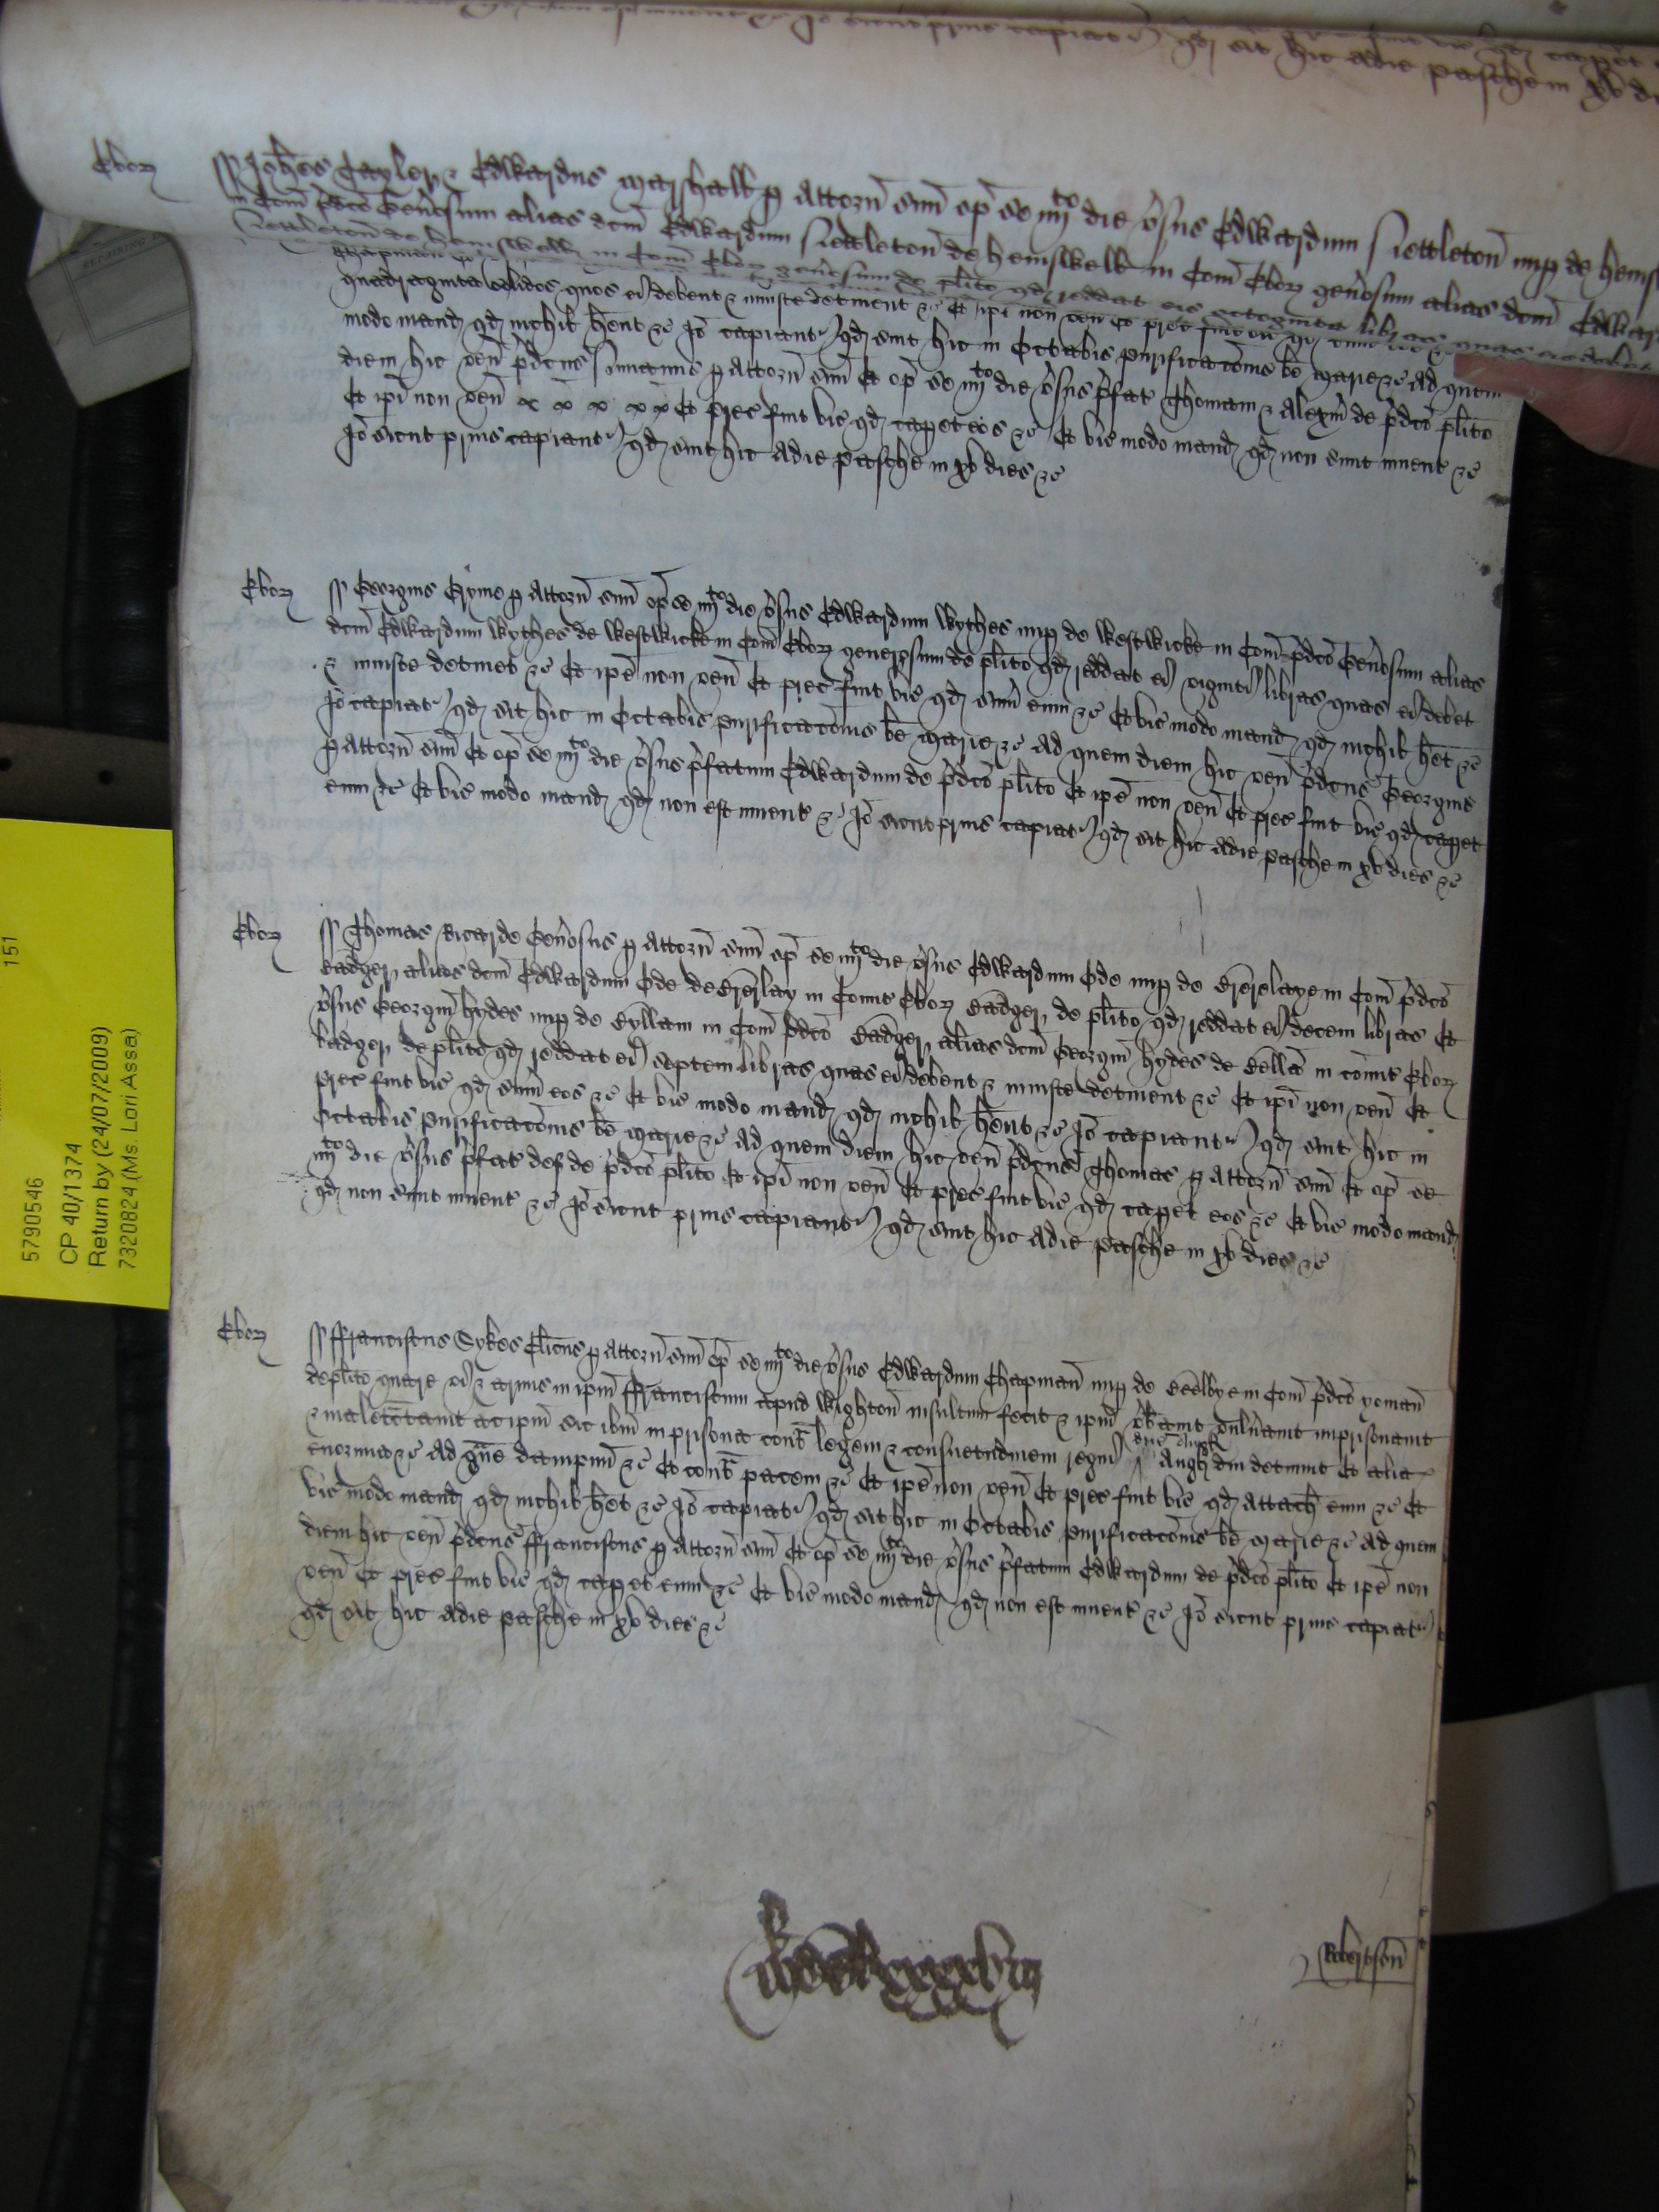 Ebor
ss Johes Tayler & Edwardus Marshall p attorn suu op se iiijto die vsus Edwardum Nettleton nup de
in Com pdco Genosum alias dcm Edwardum Nettleton de hemswell in Com Ebor genosum alias dcm
Nettleton de hemswell in Com Ebor genosum de plito qd reddat eis octoginta libras quas
quadraginta solidos quos ei debent & iniuste detinent &c Et ipi non ven Et prec fuit
modo mand qd nichil hent &c Io capiant qd sint hic in Octabis purificacois be Marie &c Ad quem
diem hic ven pdcus p attorn suu Et op se iiijto die vsus pfat Thomam & Alexm de pdco plito
Et ipi non ven Et prec fuit vic qd capet eos &c Et vic modo mand qd non sunt invent &c
Io sicut prius capiant qd sint hic a die pasche in xv dies &c
Ebor
ss Georgius Cryme p attorn suu op se iiijto die vsus Edwardum Wythes nup de Westwicke in Com pdco Genosum alias
dcm Edwardum Wythes de Westwicke in Com Ebor generosum de plito qd reddat ei viginti libras quas ei debet
& iniuste detinet &c Et ipe non ven Et prec fuit vic qd sum eum &c Et vic modo mand qd nichil het &c
Io capiat qd sit hic in Octabis purificacois be Marie &c Ad quem diem hic ven pdcus Georgius
p attorn suu Et op se iiijto die vsus pfatum Edwardum de pdco plito Et ipe non ven Et prec fuit vic qd capet
eum &c Et vic modo mand qd non est invent &c Io sicut prius capiat qd sit hic a die pasche in xv dies &c
Ebor
ss Thomas Ricarde Genosus p attorn suu op se iiijto die vsus Edwardum Ode nup de in Com pdco
Badger alias dcm Edwardum Ode de in Comit Ebor Badger de plito qd reddat ei decem libras Et
vsus Georgm hydes nup de Kyllam in Com pdco Badger alias dcm Georgm hydes de in comit Ebor
badger de plito qd reddat ei septem libras quas ei debent & iniuste detinent &c Et ipi non ven Et
prec fuit vic qd sum eos &c Et vic modo mand qd nichil hent &c Io capiant qd sint hic in
Octabis purificacois be Marie &c Ad quem diem hic ven pdcus Thomas p attorn suu Et op se
iiijto die vsus pfat def de pdco plito Et ipi non ven Et prec fuit vic qd capet eos &c Et vic modo mand
qd non sunt invent &c Io sicut prius capiant qd sint hic a die pasche in xv dies &c
Ebor
ss ffranciscus Sykes Clicus p attorn suu op se iiijto die vsus Edwardum Chapman nup de Beelbye in Com pdco yoman
de plito quare vi & armis in ipm ffranciscum apud Wighton insultum fecit & ipm vbavit vulnavit imprisonavit
& maletctavit ac ipm sic ibm in prisona cont legem & consuetudinem regni Angl diu detinuit Et alia
enormia &c Ad gve dampnu &c Et cont pacem &c Et ipe non ven Et prec fuit vic qd attach eum &c Et
vic modo mand qd nichil het &c Io capiat qd sit hic in Octabis purificacois be Marie &c Ad quem
diem hic ven pdcus ffranciscus p attorn suu Et op se iiijto die vsus pfatum Edwardum de pdco plito Et ipe non
ven Et prec fuit vic qd capet eum &c Et vic modo mand qd non est invent &c Io sicut prius capiat
qd sit hic a die pasche in xv dies &c
Robertson
151
5790546
CP 40/1374
Return by (24/07/2009)
7320824 (Ms. Lori Assa)